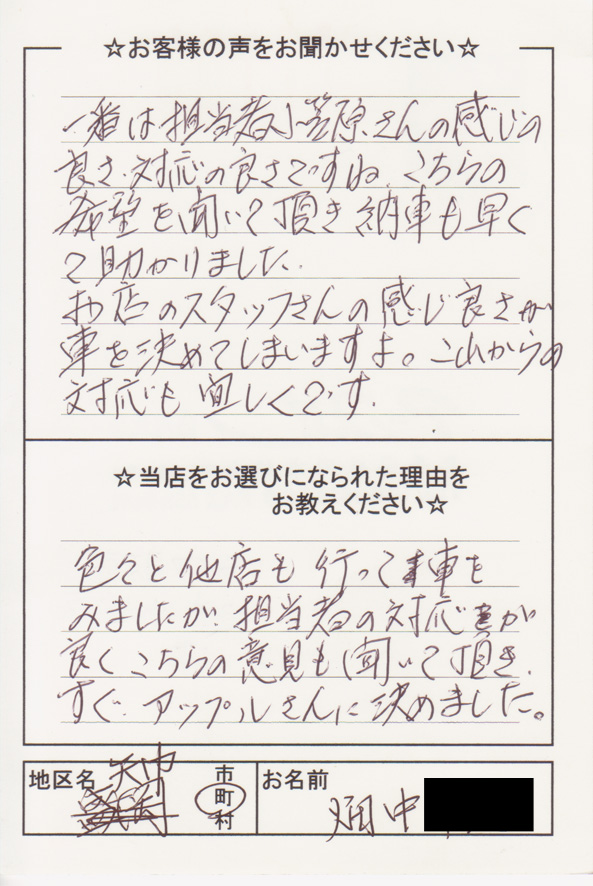 ☆お客様の声をお聞かせください☆
一番は担当者小笠原さんの感じの
良さ、対応の良さですね、こちらの
希望を聞いて頂き納車も早く
て助かりました。
お店のスタッフさんの感じ良さが
車を決めてしまいますよ。これからの
対応も宜しくです。
☆当店をお選びになられた理由を
お教えください☆
色々と他店も行って車を
みましたが、担当者の対応が
良くこちらの意見も聞いて頂き、
すぐ、アップルさんに決めました。
地区名 市町村 お名前 畑中